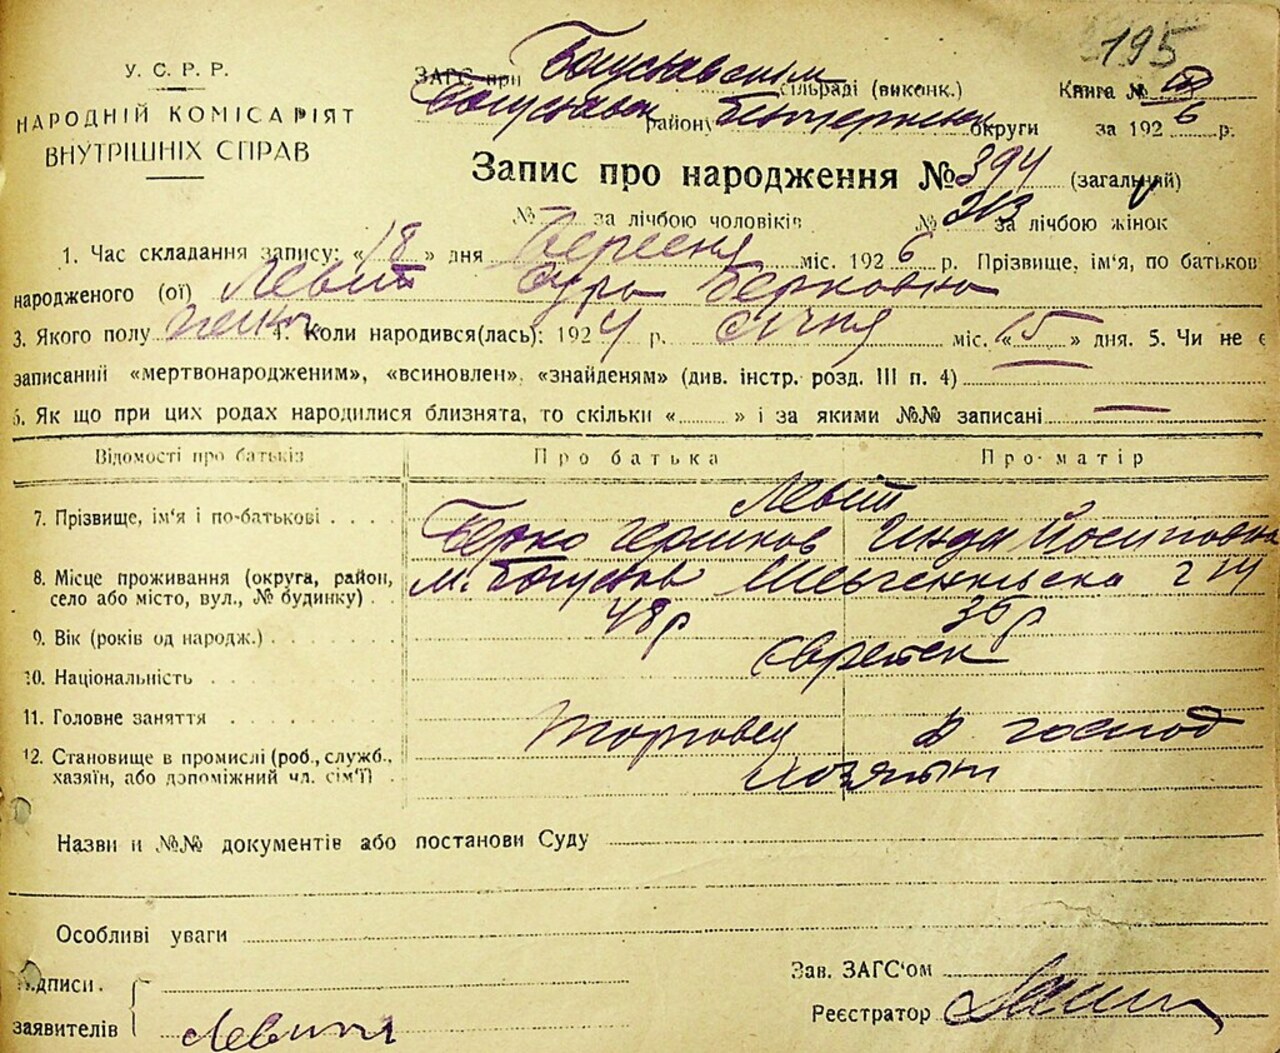 195
У. С. Р. Р.
НАРОДНІЙ КОМІСАРІЯТ
ВНУТРІШНІХ СПРАВ
ЗАГС при Богуславськім сільраді (виконк.)
Богуславск району округи
Книга №
за 1926 р.
Запис про народження № 394 (загальний)
№ за лічбою чоловіків № 213 за лічбою жінок
1. Час складання запису: «18» дня Вересня міс. 1926 р. Прізвище, ім'я, по батьков
народженого (ої) Левіт Сура Берковна
3. Якого полу жіноч 4. Коли народився(лась): 1924 р. січня міс. «15» дня. 5. Чи не є
записаний «мертвонародженим», «всиновлен», «знайденям» (див. інстр. розд. III п. 4)
6. Як що при цих родах народилися близнята, то скільки « » і за якими №№ записані —
Відомості про батьків Про батька Про матір
Левіт
7. Прізвище, ім'я і по-батькові Берко Гершков Гинда Йосиповна
8. Місце проживання (округа, район,
село або місто, вул., № будинку) м. Богуслав Шевченківська
9. Вік (років од народж.) 48 р 36 р
10. Національність Євреіск
11. Головне заняття Торговец д. господ
12. Становище в промислі (роб., служб.,
хазяїн, або допоміжний чл. сім'ї)
Назви и №№ документів або постанови Суду
Особливі уваги
Підписи
заявителів Левит
Зав. ЗАГС'ом
Реєстратор